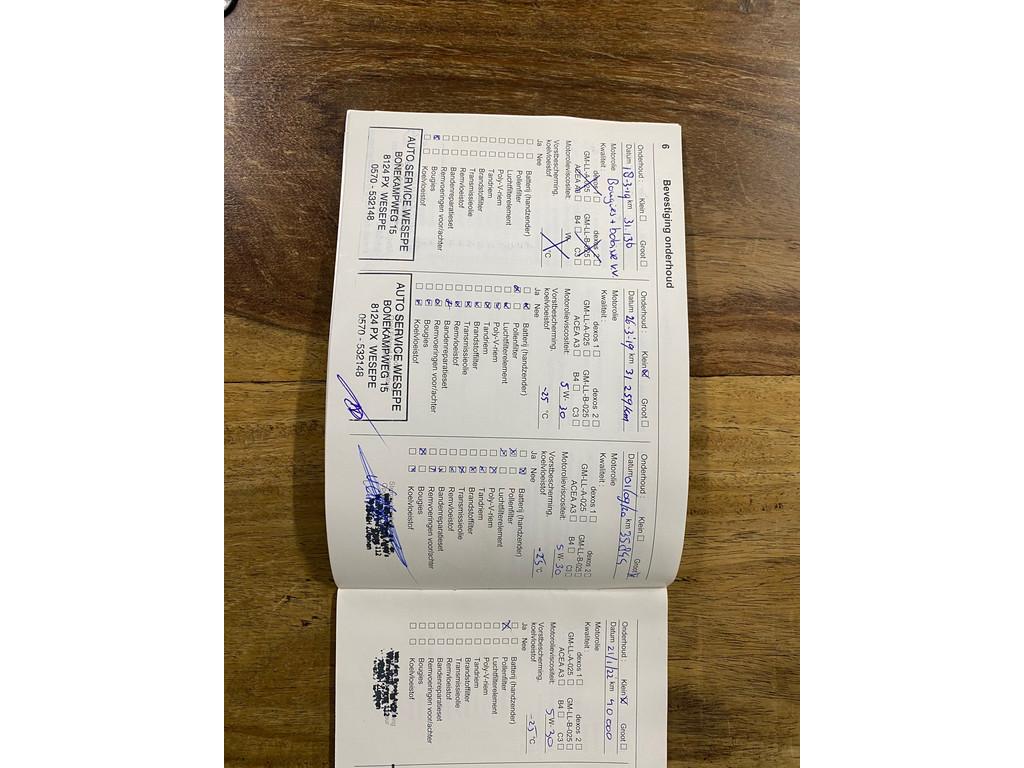 6
Bevestiging onderhoud
Onderhoud : Klein Groot
Datum 18-3-19 km 31.136
Motorolie Bougies + bobine vv.
Kwaliteit : dexos 1 dexos 2
GM-LL-A-025 GM-LL-B-025
ACEA A3 B4 C3
Motorolieviscositeit: W-
Vorstbescherming,
koelvloeistof °C
Ja Nee
Batterij (handzender)
Pollenfilter
Luchtfilterelement
Poly-V-riem
Tandriem
Brandstoffilter
Transmissieolie
Remvloeistof
Bandenreparatieset
Remvoeringen voor/achter
Bougies
Koelvloeistof
AUTO SERVICE WESEPE
BONEKAMPWEG 15
8124 PX WESEPE
0570 - 532148
Onderhoud : Klein Groot
Datum 26-3-'19 km 31.259 km
Motorolie
Kwaliteit : dexos 1 dexos 2
GM-LL-A-025 GM-LL-B-025
ACEA A3 B4 C3
Motorolieviscositeit: 5 W- 30
Vorstbescherming,
koelvloeistof -25 °C
Ja Nee
Batterij (handzender)
Pollenfilter
Luchtfilterelement
Poly-V-riem
Tandriem
Brandstoffilter
Transmissieolie
Remvloeistof
Bandenreparatieset
Remvoeringen voor/achter
Bougies
Koelvloeistof
AUTO SERVICE WESEPE
BONEKAMPWEG 15
8124 PX WESEPE
0570 - 532148
Onderhoud : Klein Groot
Datum 01/09/20 km 35.844
Motorolie
Kwaliteit : dexos 1 dexos 2
GM-LL-A-025 GM-LL-B-025
ACEA A3 B4 C3
Motorolieviscositeit: 5 W- 30
Vorstbescherming,
koelvloeistof -25 °C
Ja Nee
Batterij (handzender)
Pollenfilter
Luchtfilterelement
Poly-V-riem
Tandriem
Brandstoffilter
Transmissieolie
Remvloeistof
Bandenreparatieset
Remvoeringen voor/achter
Bougies
Koelvloeistof
112
Zutphen
Onderhoud : Klein Groot
Datum 21/1/22 km 40000
Motorolie
Kwaliteit : dexos 1 dexos 2
GM-LL-A-025 GM-LL-B-025
ACEA A3 B4 C3
Motorolieviscositeit: 5 W- 30
Vorstbescherming,
koelvloeistof -25 °C
Ja Nee
Batterij (handzender)
Pollenfilter
Luchtfilterelement
Poly-V-riem
Tandriem
Brandstoffilter
Transmissieolie
Remvloeistof
Bandenreparatieset
Remvoeringen voor/achter
Bougies
Koelvloeistof
112